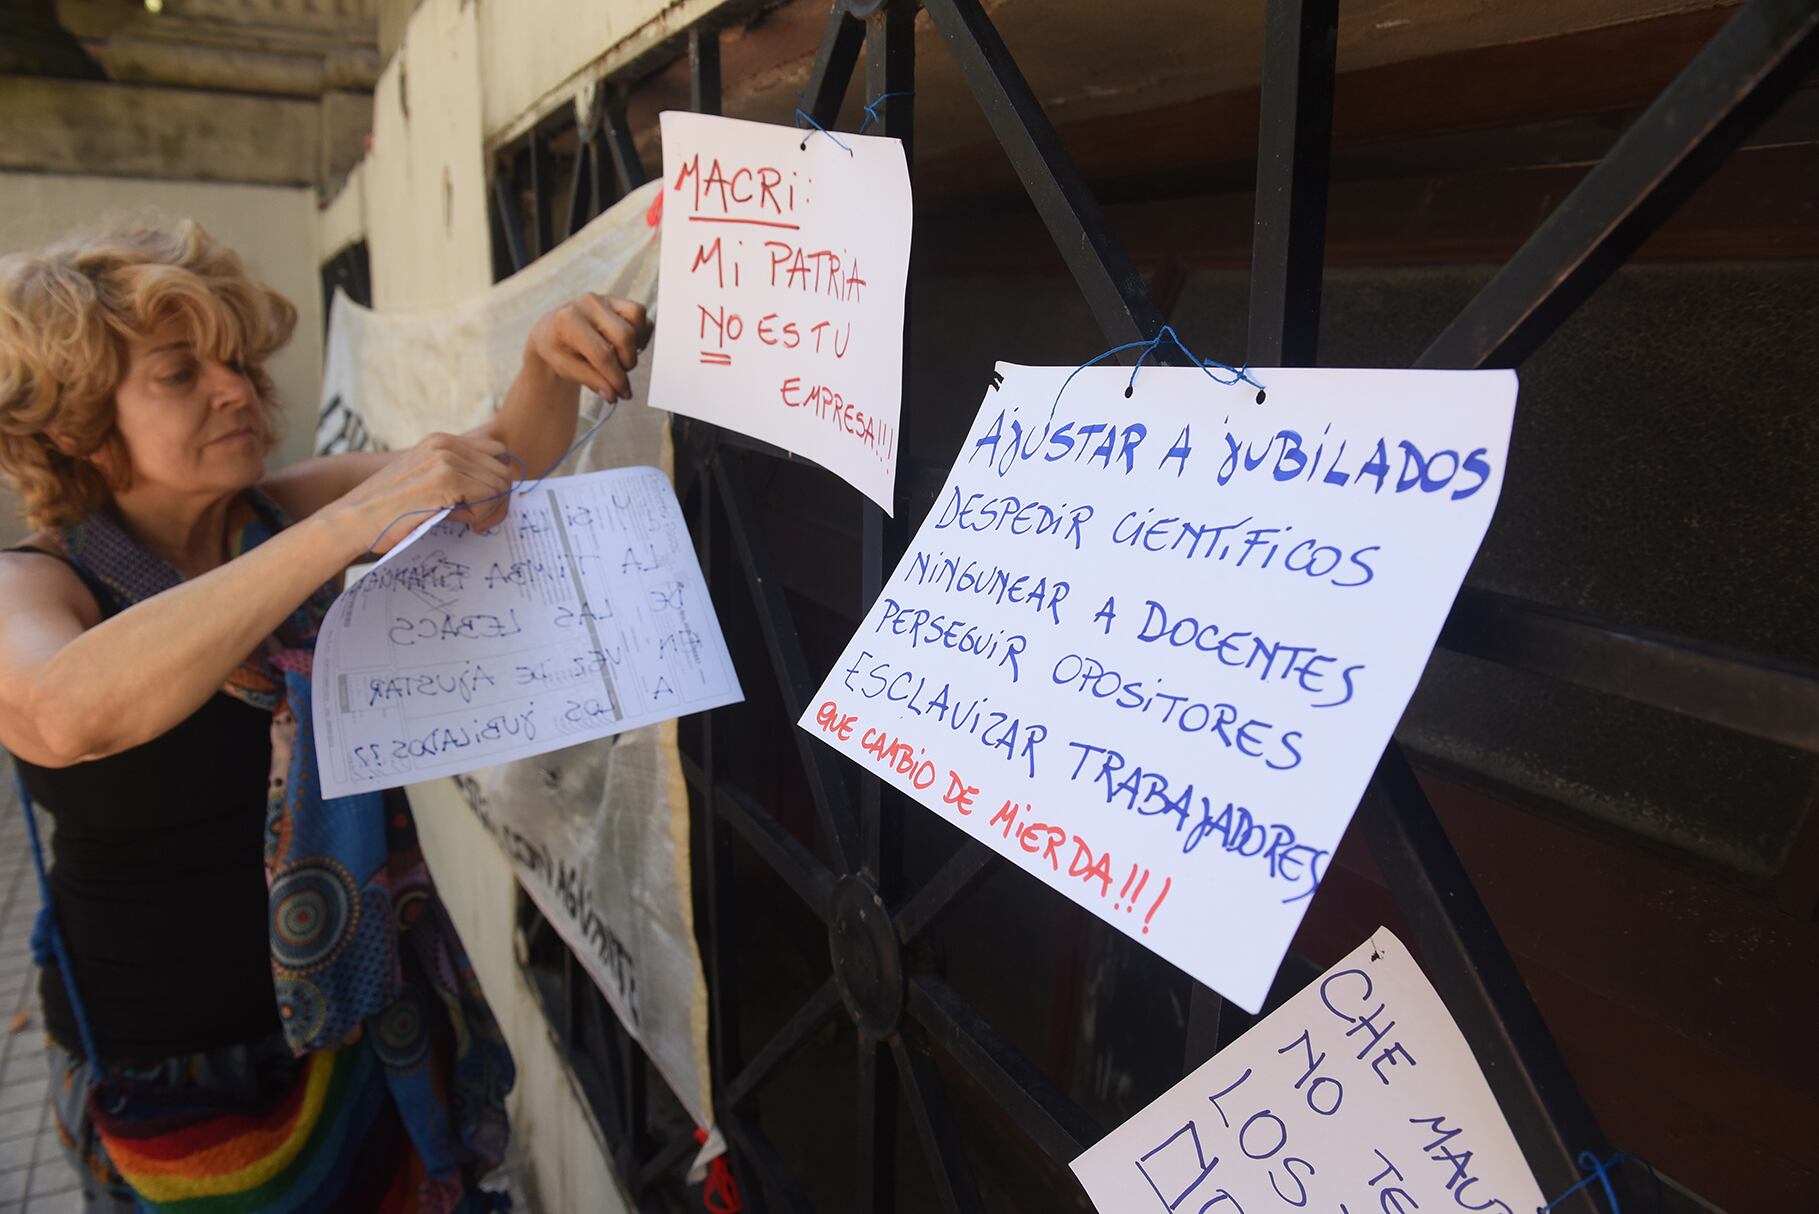 MACRi:
Mi PATRiA
NO ES TU
EMPRESA!!!
AjUSTAR A jUBiLADOS
DESPEDiR CiENTíFiCOS
NiNGUNEAR A DOCENTES
PERSEGUiR OPOSiTORES
ESCLAViZAR TRABAjADORES
QUE CAMBiO DE MiERDA!!!
Y Si
LA
TiMBA FiNANCiERA
DE LAS LEBACS
EN VEZ DE AjUSTAR
A LOS jUBiLADOS??
CHE MAU
NO TE
LOS